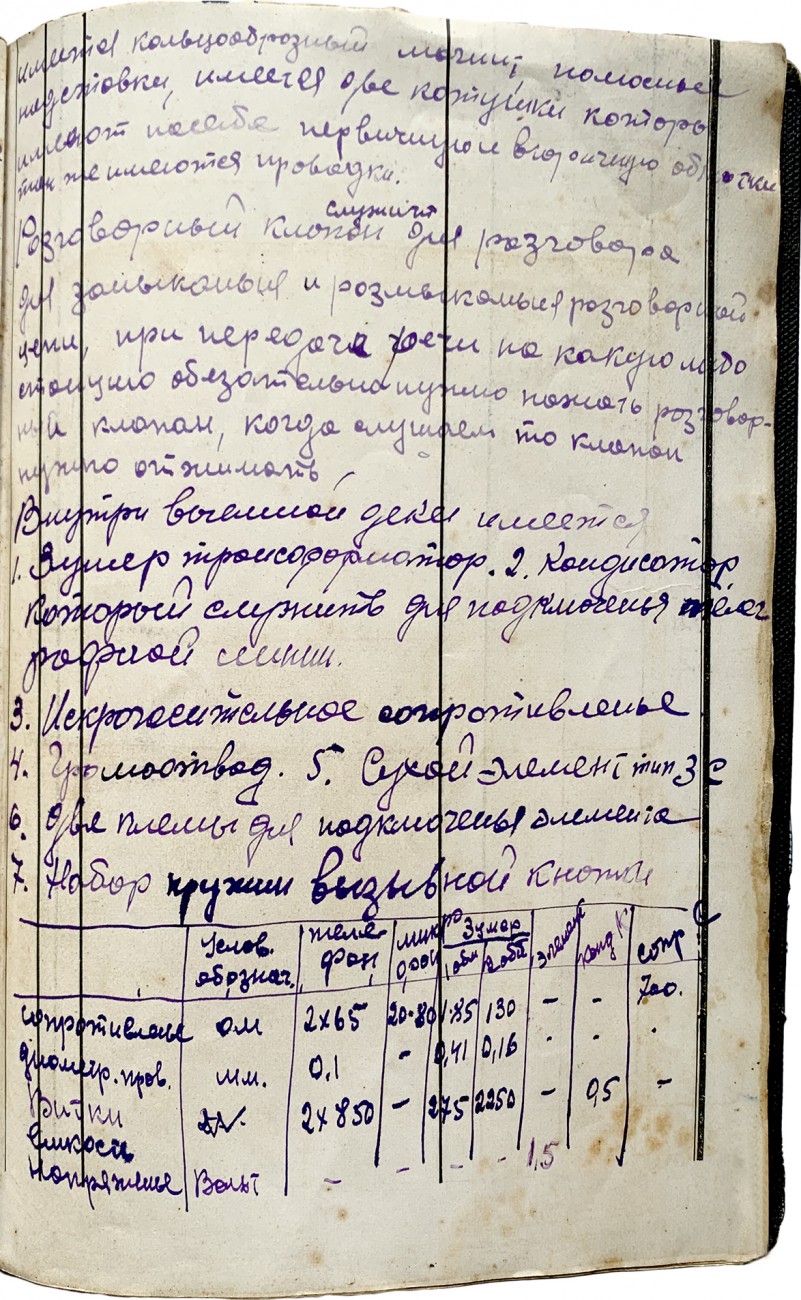 имеется кольцооброзный магнит, полюсные
надставки, имеется две котушки которы
имеют насебе первичную и вторичную об отки
так же имеются проводки.
служит
Розговорный клопан для розговора
для замыканья и розмыканья розговорной
цепи, при передачи речи на какую либо
станцию обязательно нужно нажать розговор-
ный клапан, когда слушаем то клапан
нужно отжимать,
Внутри выемной деки имеется
1. Зумер трансформатор. 2. Кондисатор
который служить для подключенья телег
рафной линии.
3. Искрогасительное сопротивленье
4. Громоотвод. 5. Сухой элемент тип 3 с
6. Две клемы для подключенья элемента
7. Набор пружин вызывной кнопки
Услов. обознач. | теле фон | микро фон | Зумер 1 обм 2 обм | элемент | конд К | сопр
сопротивленье ом 2х65 20-80 1.85 130 - - 700.
диометр. пров. мм. 0,1 - 0,41 0,16 - -
Витки 2х850 - 275 2250 - 0,5 -
Емкость
Напряженье Вольт - - - - 1,5